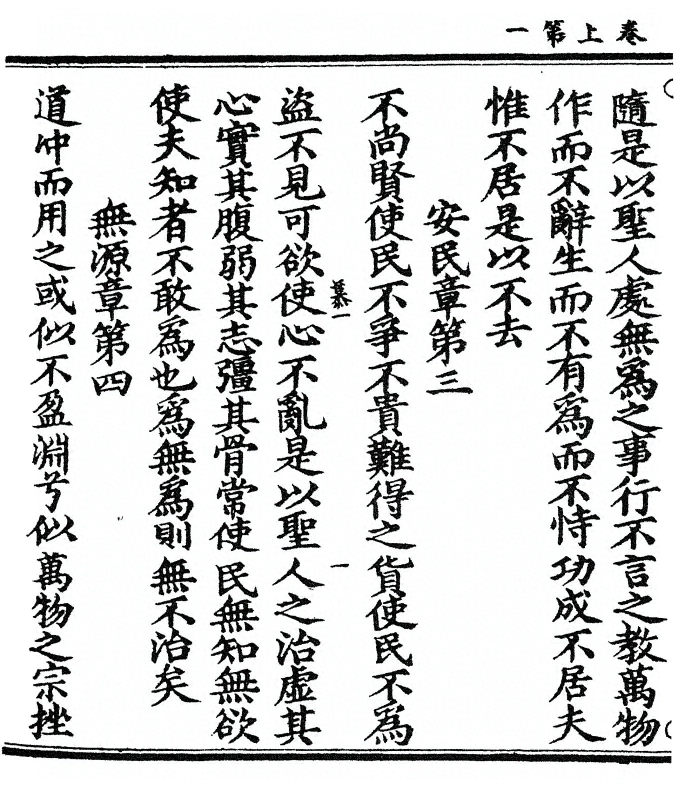 卷上第一
隨是以聖人處無爲之事行不言之教萬物
作而不辭生而不有爲而不恃功成不居夫
惟不居是以不去
安民章第三
不尚賢使民不爭不貴難得之貨使民不爲
一
盜不見可欲使心不亂是以聖人之治虛其
心實其腹弱其志彊其骨常使民無知無欲
使夫知者不敢爲也爲無爲則無不治矣
無源章第四
道冲而用之或似不盈淵兮似萬物之宗挫